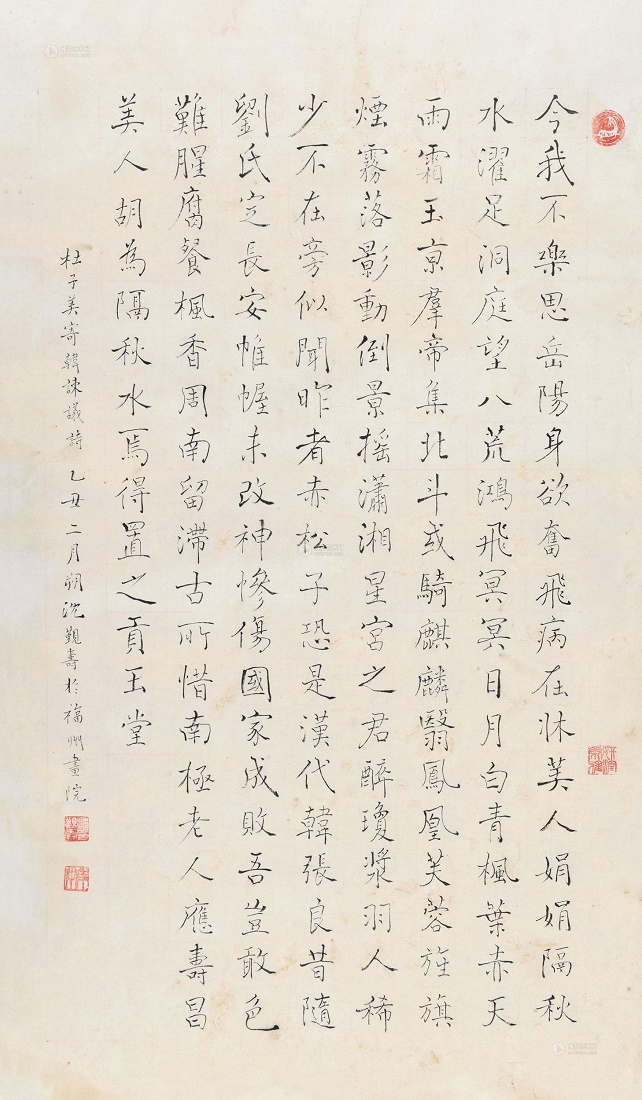 今我不樂思岳陽身欲奮飛病在牀美人娟娟隔秋
水濯足洞庭望八荒鴻飛冥冥日月白青楓葉赤天
雨霜玉京羣帝集北斗或騎麒麟翳鳳凰芙蓉旌旗
煙霧落影動倒景搖瀟湘星宮之君醉瓊漿羽人稀
少不在旁似聞昨者赤松子恐是漢代韓張良昔隨
劉氏定長安帷幄未改神慘傷國家成敗吾豈敢色
難腥腐餐楓香周南留滯古所惜南極老人應壽昌
美人胡為隔秋水焉得置之貢玉堂
杜子美寄韓諫議詩 乙丑二月朔沈覲壽於福州畫院